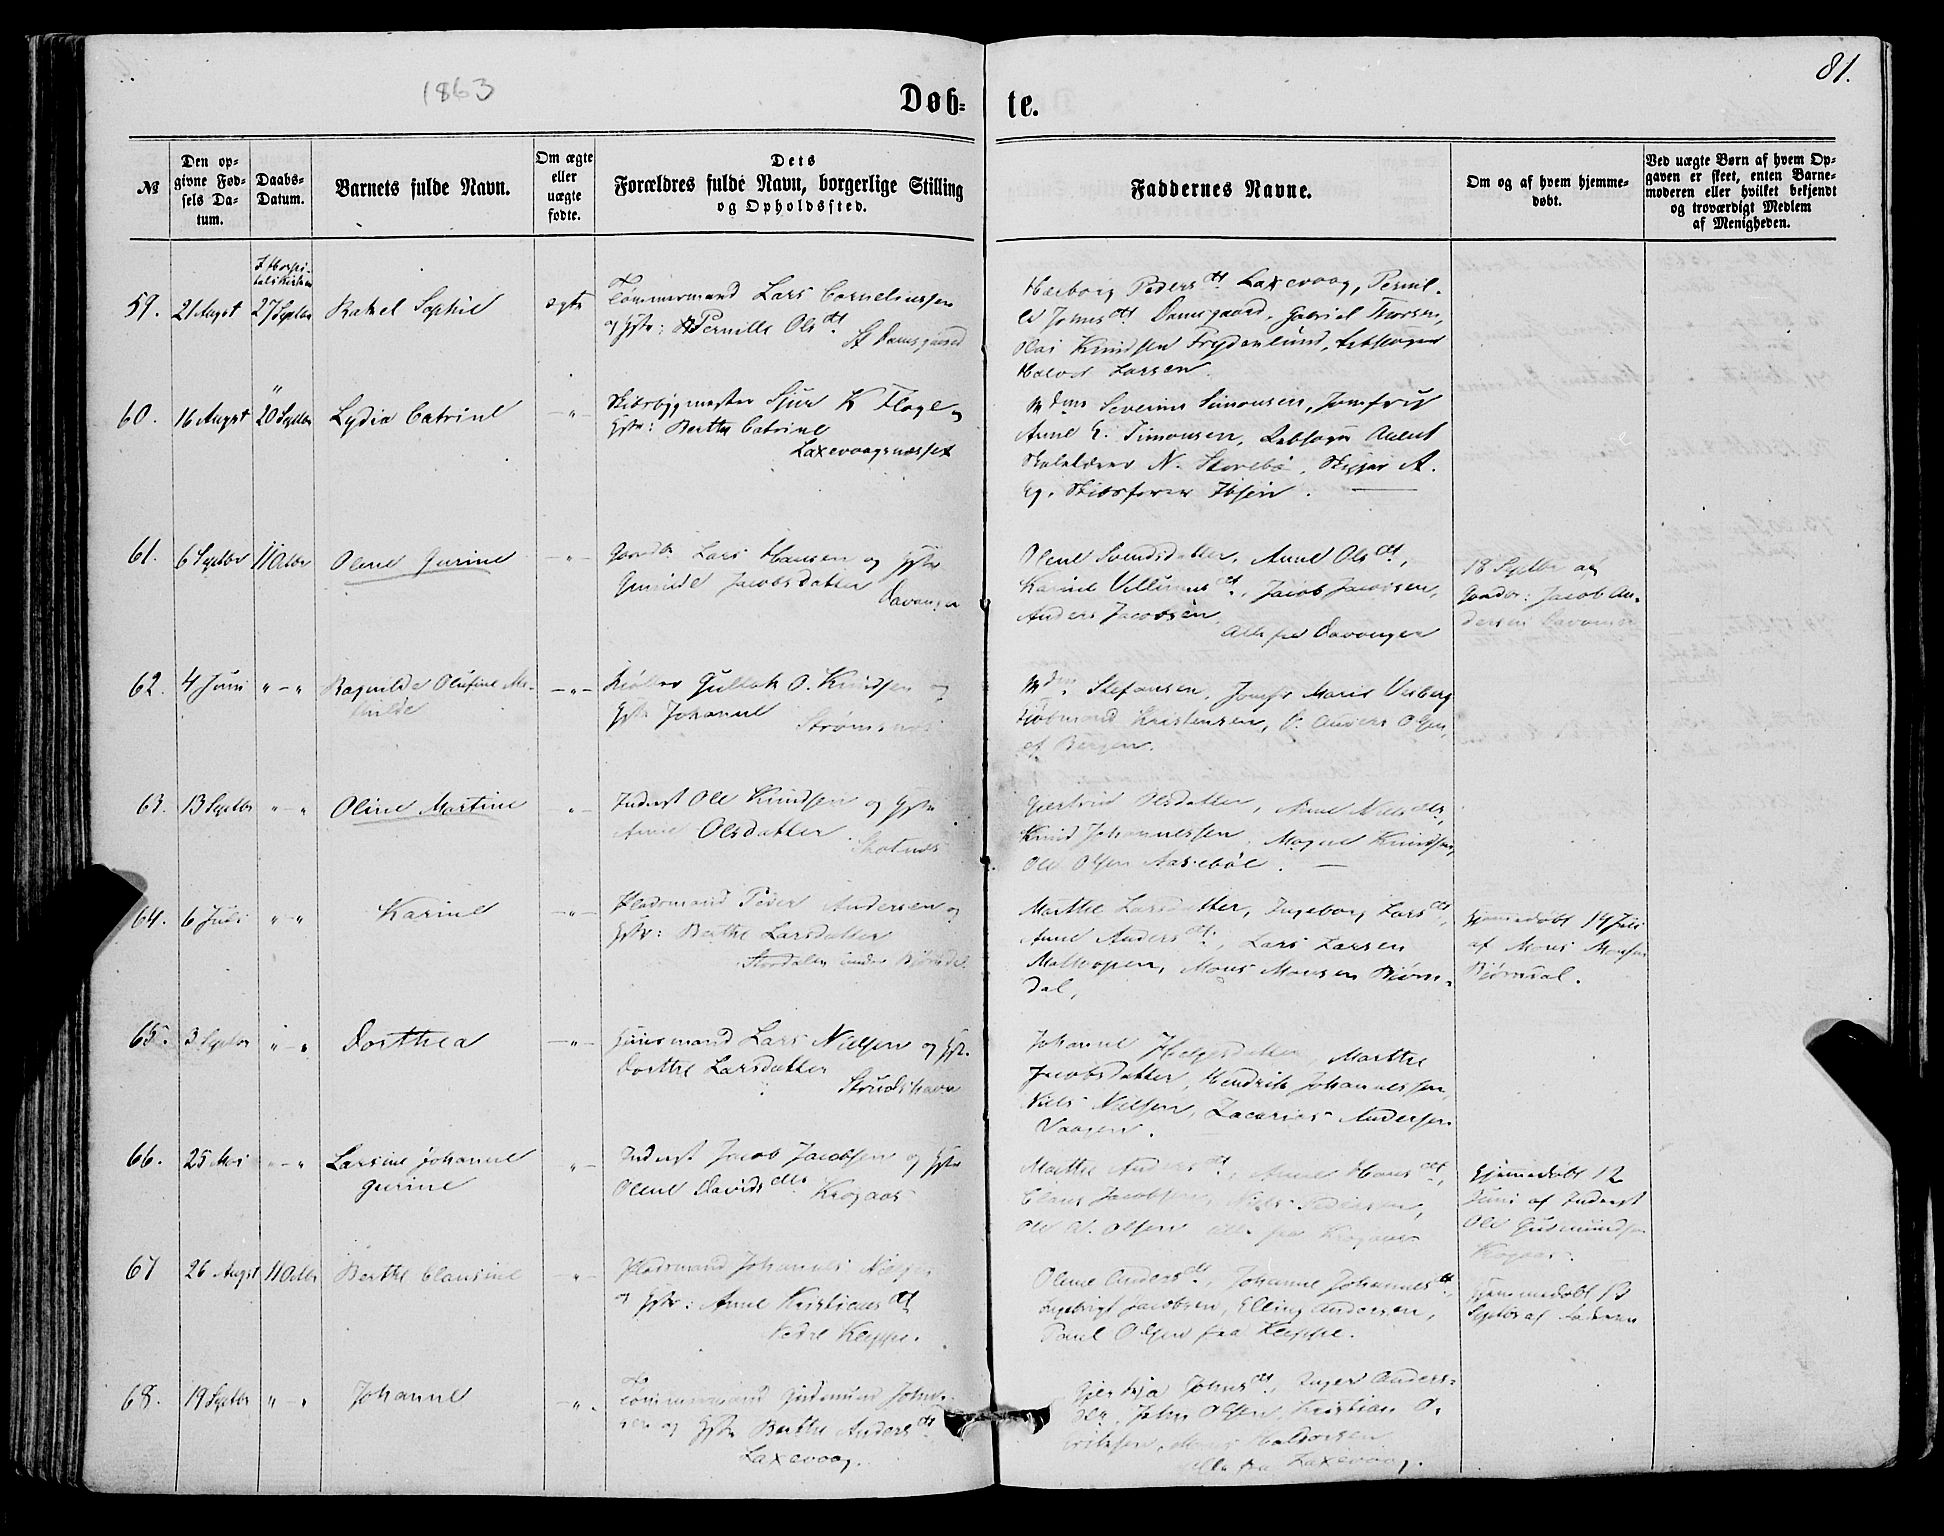 81.
1863
Døb- te.
№
Den op-
givne Fød-
sels Da-
tum.
Daabs-
Datum.
Barnets fulde Navn.
Om ægte
eller
uægte
fødte.
Dets
Forældres fulde Navn, borgerlige Stilling
og Opholdssted.
Faddernes Navne.
Om og af hvem hjemme-
døbt.
Ved uægte Børn af hvem Op-
gaven er skeet, enten Barne-
moderen eller hvilket bekjendt
og troværdigt Medlem
af Menigheden.
59. 21 August 27 Septbr Rakel Sophie ægte
Tømmermand Lars Corneliussen
og Hstr: Pernille Olsdtt
St Damsgaard
Herborg Pedersdtt Laxevaag, Pernil-
le Johnsdtt Damsgaard, Gabriel Thorsen,
Knudsen Frydenlund,
Larsen.
60. 16 August 20 Septbr Lydia Catrine -"-
Skibsbygmester Sjur K Floge
Hstr: Berthe Catrine
Laxevaagsnæsset
Mdme Severine Simonsen, Jomfru
Anne E. Simonsen,
N. Storebø, Skipper A.
Eg. Skibsfører Ibsen.
61. 6 Septbr 11 Octbr Olene Gurine -"-
Gaardbr Lars Hansen og Hstr
Gunilde Jacobsdatter
Davanger
Olene Svendsdatter, Anne Olsdtt,
Karine Villumsdt, Jacob Jacobsen,
Anders Jacobsen,
Alle fra Davanger
18 Septbr af
Gaardbr: Jacob An-
dersen Davanger
62. 4 Juni "-" Ragnilde Olufine Ma-
thilde -"-
Møller Gullak O. Knudsen og
Hstr Johanne
Strømsnes
Mdm. Stefansen, Jomfr Marie Vesberg
Kjøbmand Kristensen, Anders Olsen,
af Bergen.
63. 13 Septbr "-" Oline Martine "-
Inderst Ole Knudsen og Hstr
Anne Olsdatter
Skotnes
Gjertrud Olsdatter, Anne Nielsdtr,
Knud Johannessen, Magne Knudsen,
Ole Olsen Aasebøe.
64. 6 Juli "-" Karine -"-
Pladsmand Peder Andersen og
Hstr: Berthe Larsdatter
Stordalen under Bjørndal
Marthe Larsdatter, Ingeborg Larsdtt,
Anne Andersdt, Lars Larsen
Mathopen, Mons Monsen Bjørn-
dal,
Hjemmedøbt 14 Juli
af Mons Monsen
Bjørndal.
65. 3 Septbr "-" Dorthea -"-
Huusmand Lars Nielsen og Hstr.
Dorthe Larsdatter
Strudshavn
Johanne Helgesdatter, Marthe
Jacobsdatter, Hendrik Johannessen,
Niels Nielsen, Zacarias Andersen
Vaagen.
66. 25 Mai "-" Larsine Johanne
Gurine "-
Inderst Jacob Jacobsen og Hstr
Olene Davidsdtr Krogaas
Marthe Andersdtt, Anne Hansdtt,
Claus Jacobsen, Niels Pedersen,
Ole A. Olsen alle fra Krogaas
Hjemmedøbt 12
Juni af Inderst
Ole Gudmundsen
Krogaas.
67 26 August 11 Octbr Berthe Clausine -"-
Pladsmand Johannes Nilsen
og Hstr: Anne Kristiansdtt
Nedre Kleppe.
Olene Andersdt, Johanne Johannesdt,
Ingebrigt Jacobsen, Elling Andersen,
Poul Olsen fra Kleppe.
Hjemmedøbt 13
Septbr af Faderen
68. 19 Septbr "-" Johanne -"-
Tømmermand Gudmund Johns-
sen og Hstr Berthe Andersdtt
Laxevaag.
Johnsdtt, Inger Anders-
dtr, John Olsen, Kristian O.
Eriksen, Mons Haldorsen
Alle fra Laxevaag.